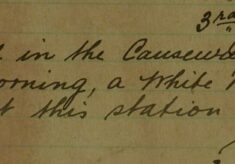 3rd
in the Causew
orning, a White
t this station